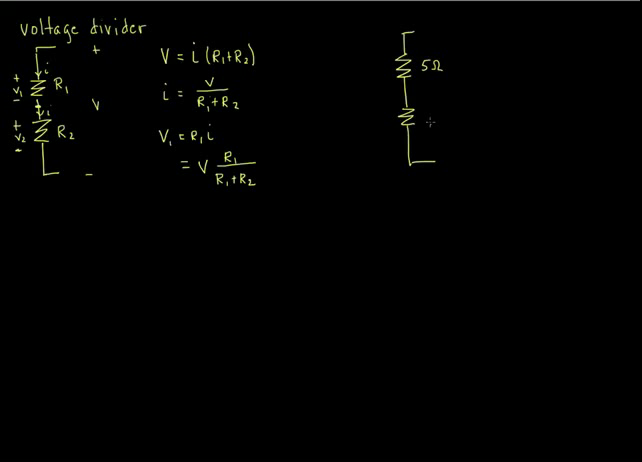 voltage divider
+
i
+
V₁
-
R₁
V
i
+
V₂
-
R₂
-
V = i (R₁+R₂)
i = V / R₁+R₂
V₁ = R₁ i
= V R₁ / R₁+R₂
5Ω